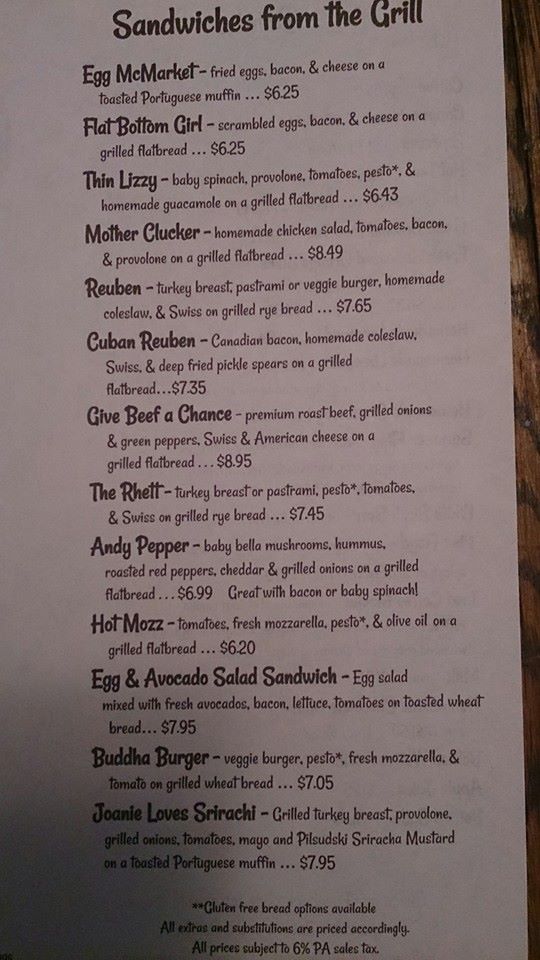 Sandwiches from the Grill
Egg McMarket – fried eggs, bacon, & cheese on a
toasted Portuguese muffin ... $6.25
Flat Bottom Girl – scrambled eggs, bacon, & cheese on a
grilled flatbread ... $6.25
Thin Lizzy – baby spinach, provolone, tomatoes, pesto*, &
homemade guacamole on a grilled flatbread ... $6.43
Mother Clucker – homemade chicken salad, tomatoes, bacon,
& provolone on a grilled flatbread ... $8.49
Reuben – turkey breast, pastrami or veggie burger, homemade
coleslaw, & Swiss on grilled rye bread ... $7.65
Cuban Reuben – Canadian bacon, homemade coleslaw,
Swiss, & deep fried pickle spears on a grilled
flatbread...$7.35
Give Beef a Chance – premium roast beef, grilled onions
& green peppers, Swiss & American cheese on a
grilled flatbread ... $8.95
The Rhett – turkey breast or pastrami, pesto*, tomatoes,
& Swiss on grilled rye bread ... $7.45
Andy Pepper – baby bella mushrooms, hummus,
roasted red peppers, cheddar & grilled onions on a grilled
flatbread ... $6.99 Great with bacon or baby spinach!
Hot Mozz – tomatoes, fresh mozzarella, pesto*, & olive oil on a
grilled flatbread ... $6.20
Egg & Avocado Salad Sandwich – Egg salad
mixed with fresh avocados, bacon, lettuce, tomatoes on toasted wheat
bread... $7.95
Buddha Burger – veggie burger, pesto*, fresh mozzarella, &
tomato on grilled wheat bread ... $7.05
Joanie Loves Srirachi – Grilled turkey breast, provolone,
grilled onions, tomatoes, mayo and Pilsudski Sriracha Mustard
on a toasted Portuguese muffin ... $7.95
**Gluten free bread options available
All extras and substitutions are priced accordingly.
All prices subject to 6% PA sales tax.